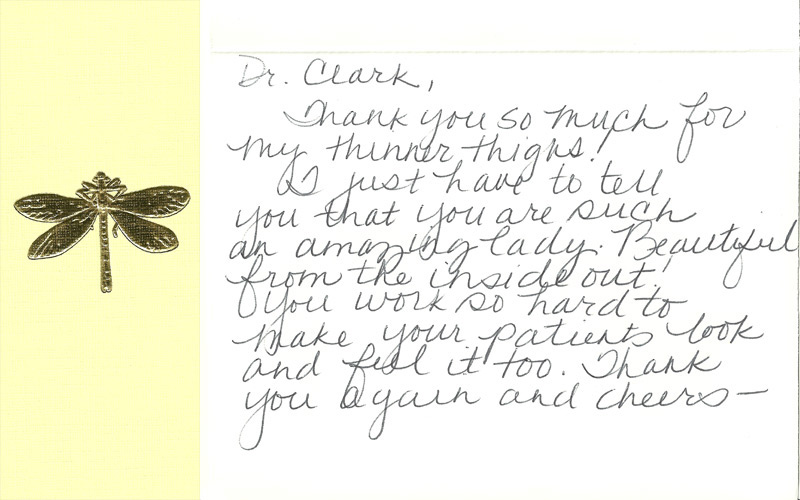 Dr. Clark,
Thank you so much for
my thinner thighs!
I just have to tell
you that you are such
an amazing lady. Beautiful
from the inside out!
You work so hard to
make your patients look
and feel it too. Thank
you again and cheers—